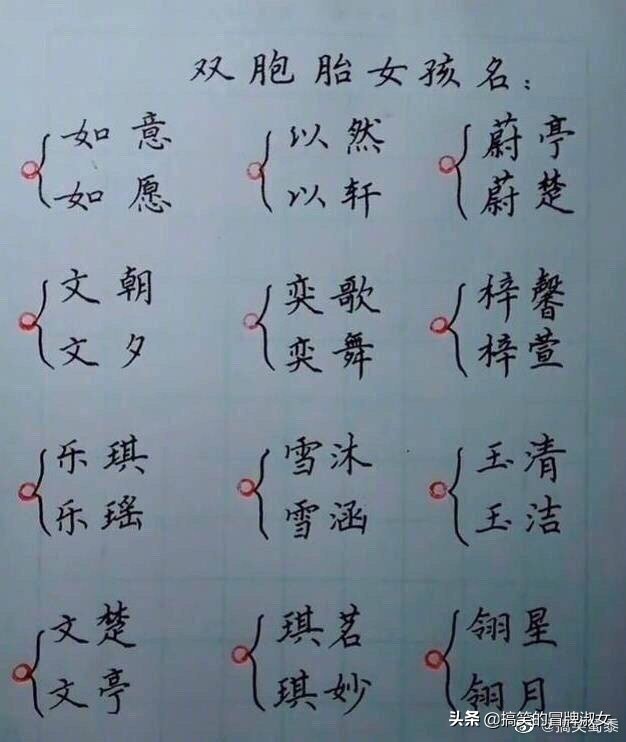 双胞胎女孩名：
如意 以然 蔚亭
如愿 以轩 蔚楚
文朝 奕歌 梓馨
文夕 奕舞 梓萱
乐琪 雪沐 玉清
乐瑶 雪涵 玉洁
文楚 琪茗 翎星
文亭 琪妙 翎月
头条 @搞笑的冒牌淑女
@搞笑蜀黍